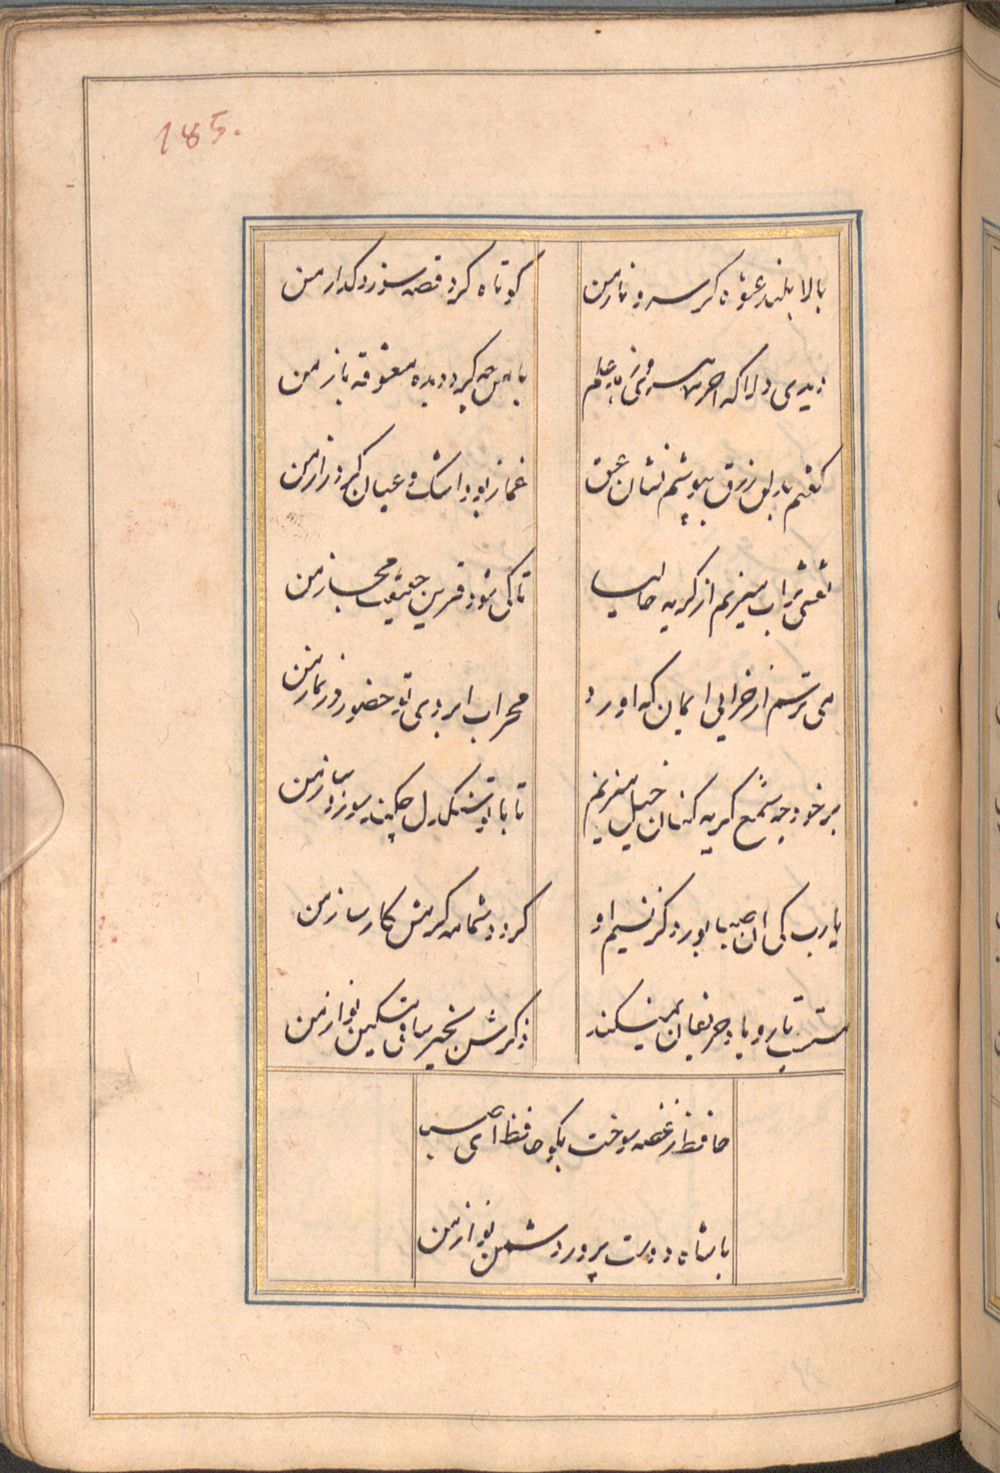 185.
بالا بلند عشوه گر سرو ناز من
کوتاه کرد قصه سوز و گداز من
دیدی دلا که اخر و زهد علم
با من چه کرد دیده معشوقه باز من
گفتم بدلق زرق بپوشم نشان عشق
غماز بود اشک و عیان کرد راز من
نقشی براب میزنم از گریه حالیا
تا کی شود قرین حقیقت مجاز من
می ترسم از خرابی ایمان که اورد
محراب ابروی تو حضور و نماز من
بر خود چو شمع گریه کنان خیل میزنم
تا با تو سنگدل چکند سوز و ساز من
یارب کی ان صبا بوزد کز نسیم او
گردد شمامه کرمش کار ساز من
مستست یار و یاد حریفان نمیکند
ذکرش بخیر ساقی مسکین نواز من
حافظ ز غصه سوخت بگو حافظ ای
با شاه دوست پرور دشمن نواز من